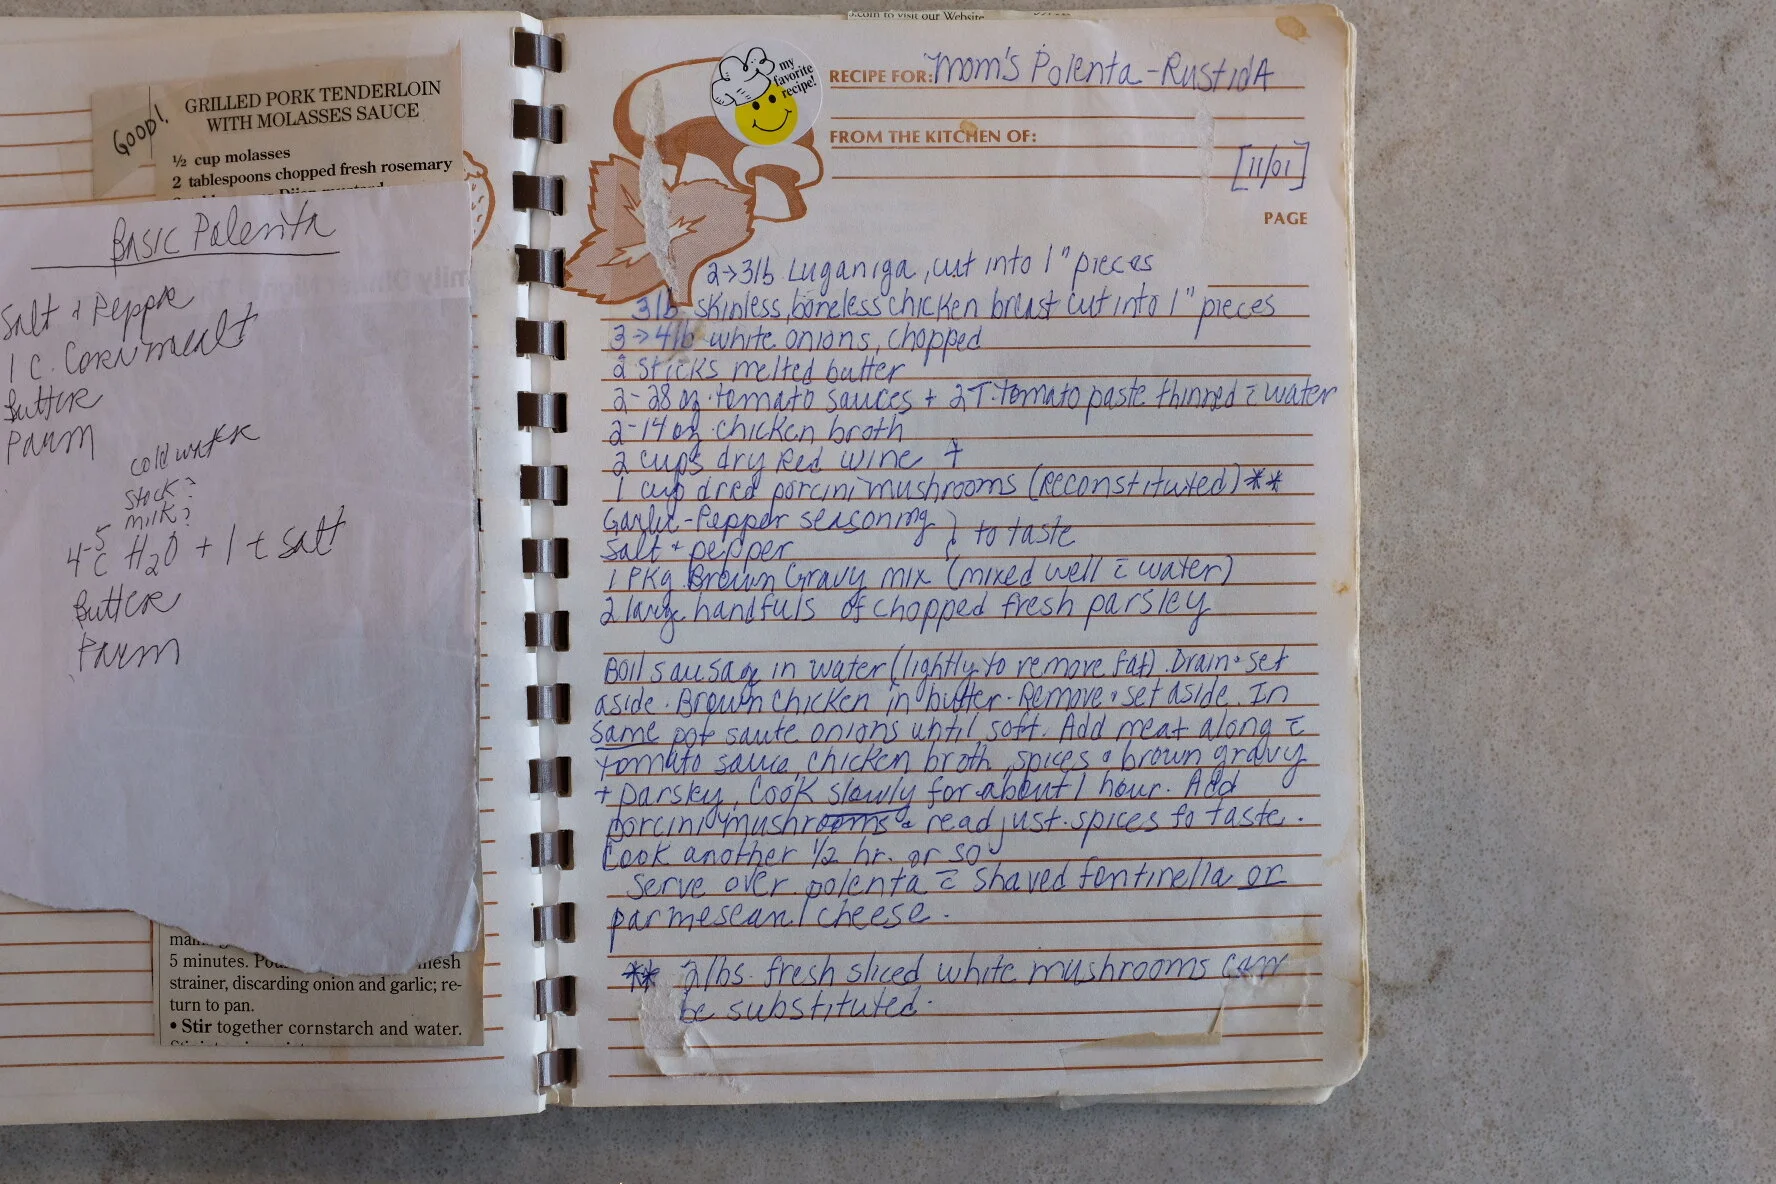 GRILLED PORK TENDERLOIN
WITH MOLASSES SAUCE
Good!
½ cup molasses
2 tablespoons chopped fresh rosemary
Basic Polenta
Salt + Pepper
1 C. Cornmeal
Butter
Parm
cold water
stock?
milk?
4-5 c H2O + 1 t salt
Butter
Parm
5 minutes.
strainer, discarding onion and garlic; re-
turn to pan.
• Stir together cornstarch and water.
s.com to visit our Website
my
favorite
recipe!
RECIPE FOR: Mom's Polenta - RustidA
FROM THE KITCHEN OF:
[11/01]
PAGE
2→3lb Luganiga, cut into 1" pieces
3lb skinless, boneless chicken breast cut into 1" pieces
3→4lb white onions, chopped
2 sticks melted butter
2-28 oz. tomato sauces + 2T. tomato paste thinned c̄ water
2-14 oz. chicken broth
2 cups dry Red wine +
1 cup dried porcini mushrooms (Reconstituted) **
Garlic-Pepper seasoning } to taste
Salt + pepper
1 Pkg. Brown Gravy mix (mixed well c̄ water)
2 large handfuls of chopped fresh parsley
Boil sausage in water (lightly to remove fat). Drain + set
aside. Brown chicken in butter. Remove + set aside. In
same pot saute onions until soft. Add meat along c̄
tomato sauce, chicken broth, spices + brown gravy
+ parsley. Cook slowly for about 1 hour. Add
porcini mushrooms + readjust spices to taste.
Cook another ½ hr. or so
Serve over polenta c̄ shaved fontinella or
parmesean cheese.
** 2 lbs. fresh sliced white mushrooms can
be substituted.